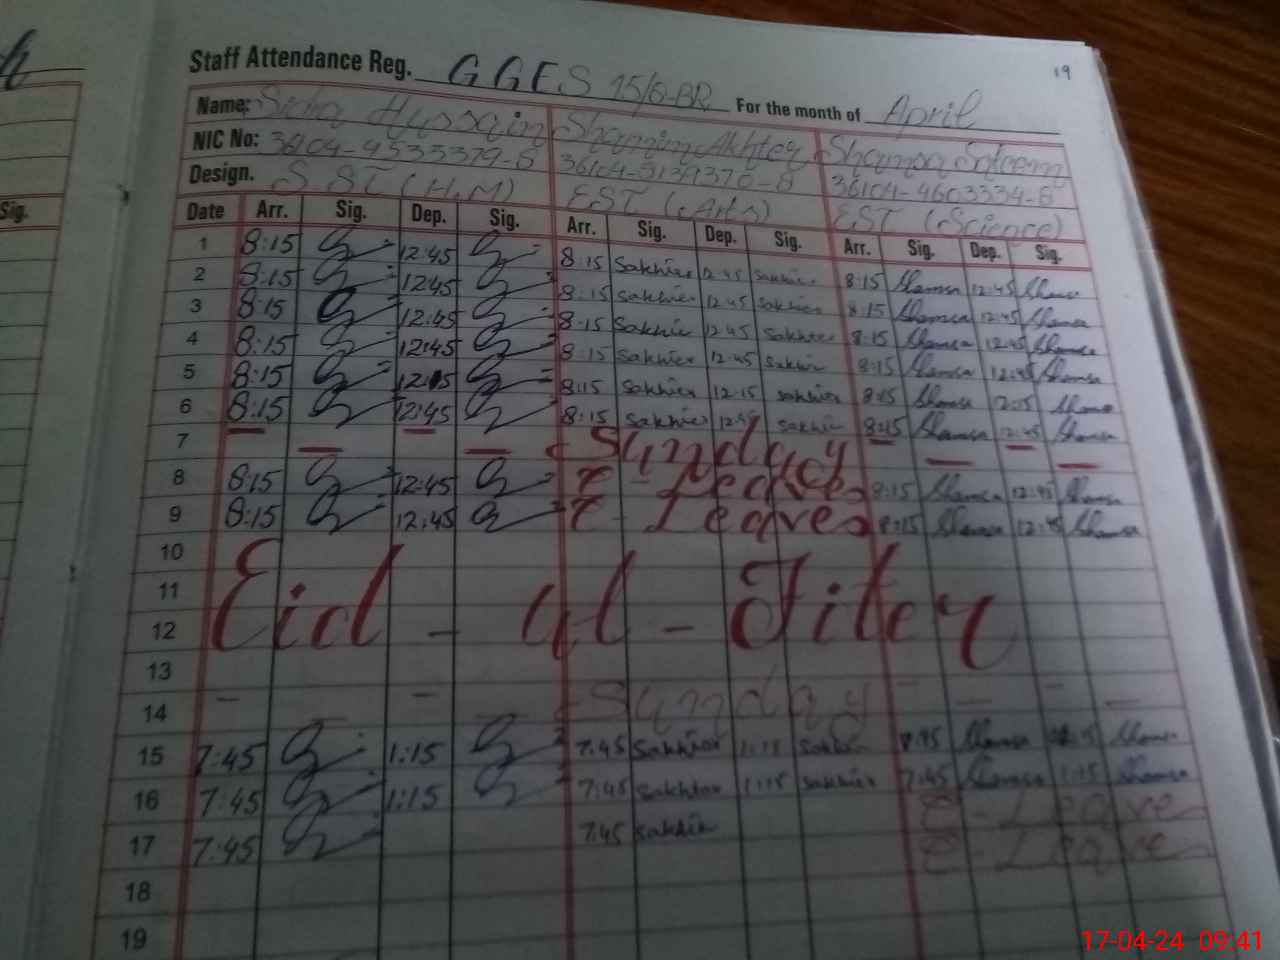 19
Staff Attendance Reg. GGES 15/G-BR For the month of April
Name: Hussain Shamim Akhter Shamsa
NIC No: 36104-9533379-8 36104-4603334-8
Design. S.ST (H.M) EST (Arts) EST (Science)
Date Arr. Sig. Dep. Sig. Arr. Sig. Dep. Sig. Arr. Sig. Dep. Sig.
1 8:15 12:45 8:15 Sakhter 12:45 Sakhter 8:15 Shamsa 12:45 Shamsa
2 8:15 12:45 8:15 Sakhter 12:45 Sakhter 8:15 Shamsa 12:45 Shamsa
3 8:15 12:45 8:15 Sakhter 12:45 Sakhter 8:15 Shamsa 12:45 Shamsa
4 8:15 12:45 8:15 Sakhter 12:45 Sakhter 8:15 Shamsa 12:45 Shamsa
5 8:15 12:15 8:15 Sakhter 12:15 Sakhter 8:15 Shamsa 12:15 Shamsa
6 8:15 12:45 8:15 Sakhter 12:45 Sakhter 8:15 Shamsa 12:45 Shamsa
7 Sunday
8 8:15 12:45 Leave 8:15 Shamsa 12:45 Shamsa
9 8:15 12:45 Leave 8:15 Shamsa 12:45 Shamsa
10
11
12 Eid - ul - Fiter
13
14 Sunday
15 7:45 1:15 7:45 Sakhter 1:15 Sakhter 7:45 Shamsa 1:15 Shamsa
16 7:45 1:15 7:45 Sakhter 1:15 Sakhter 7:45 Shamsa 1:15 Shamsa
17 7:45 7:45 Sakhter Leave
18
19
Sig.
17-04-24 09:41